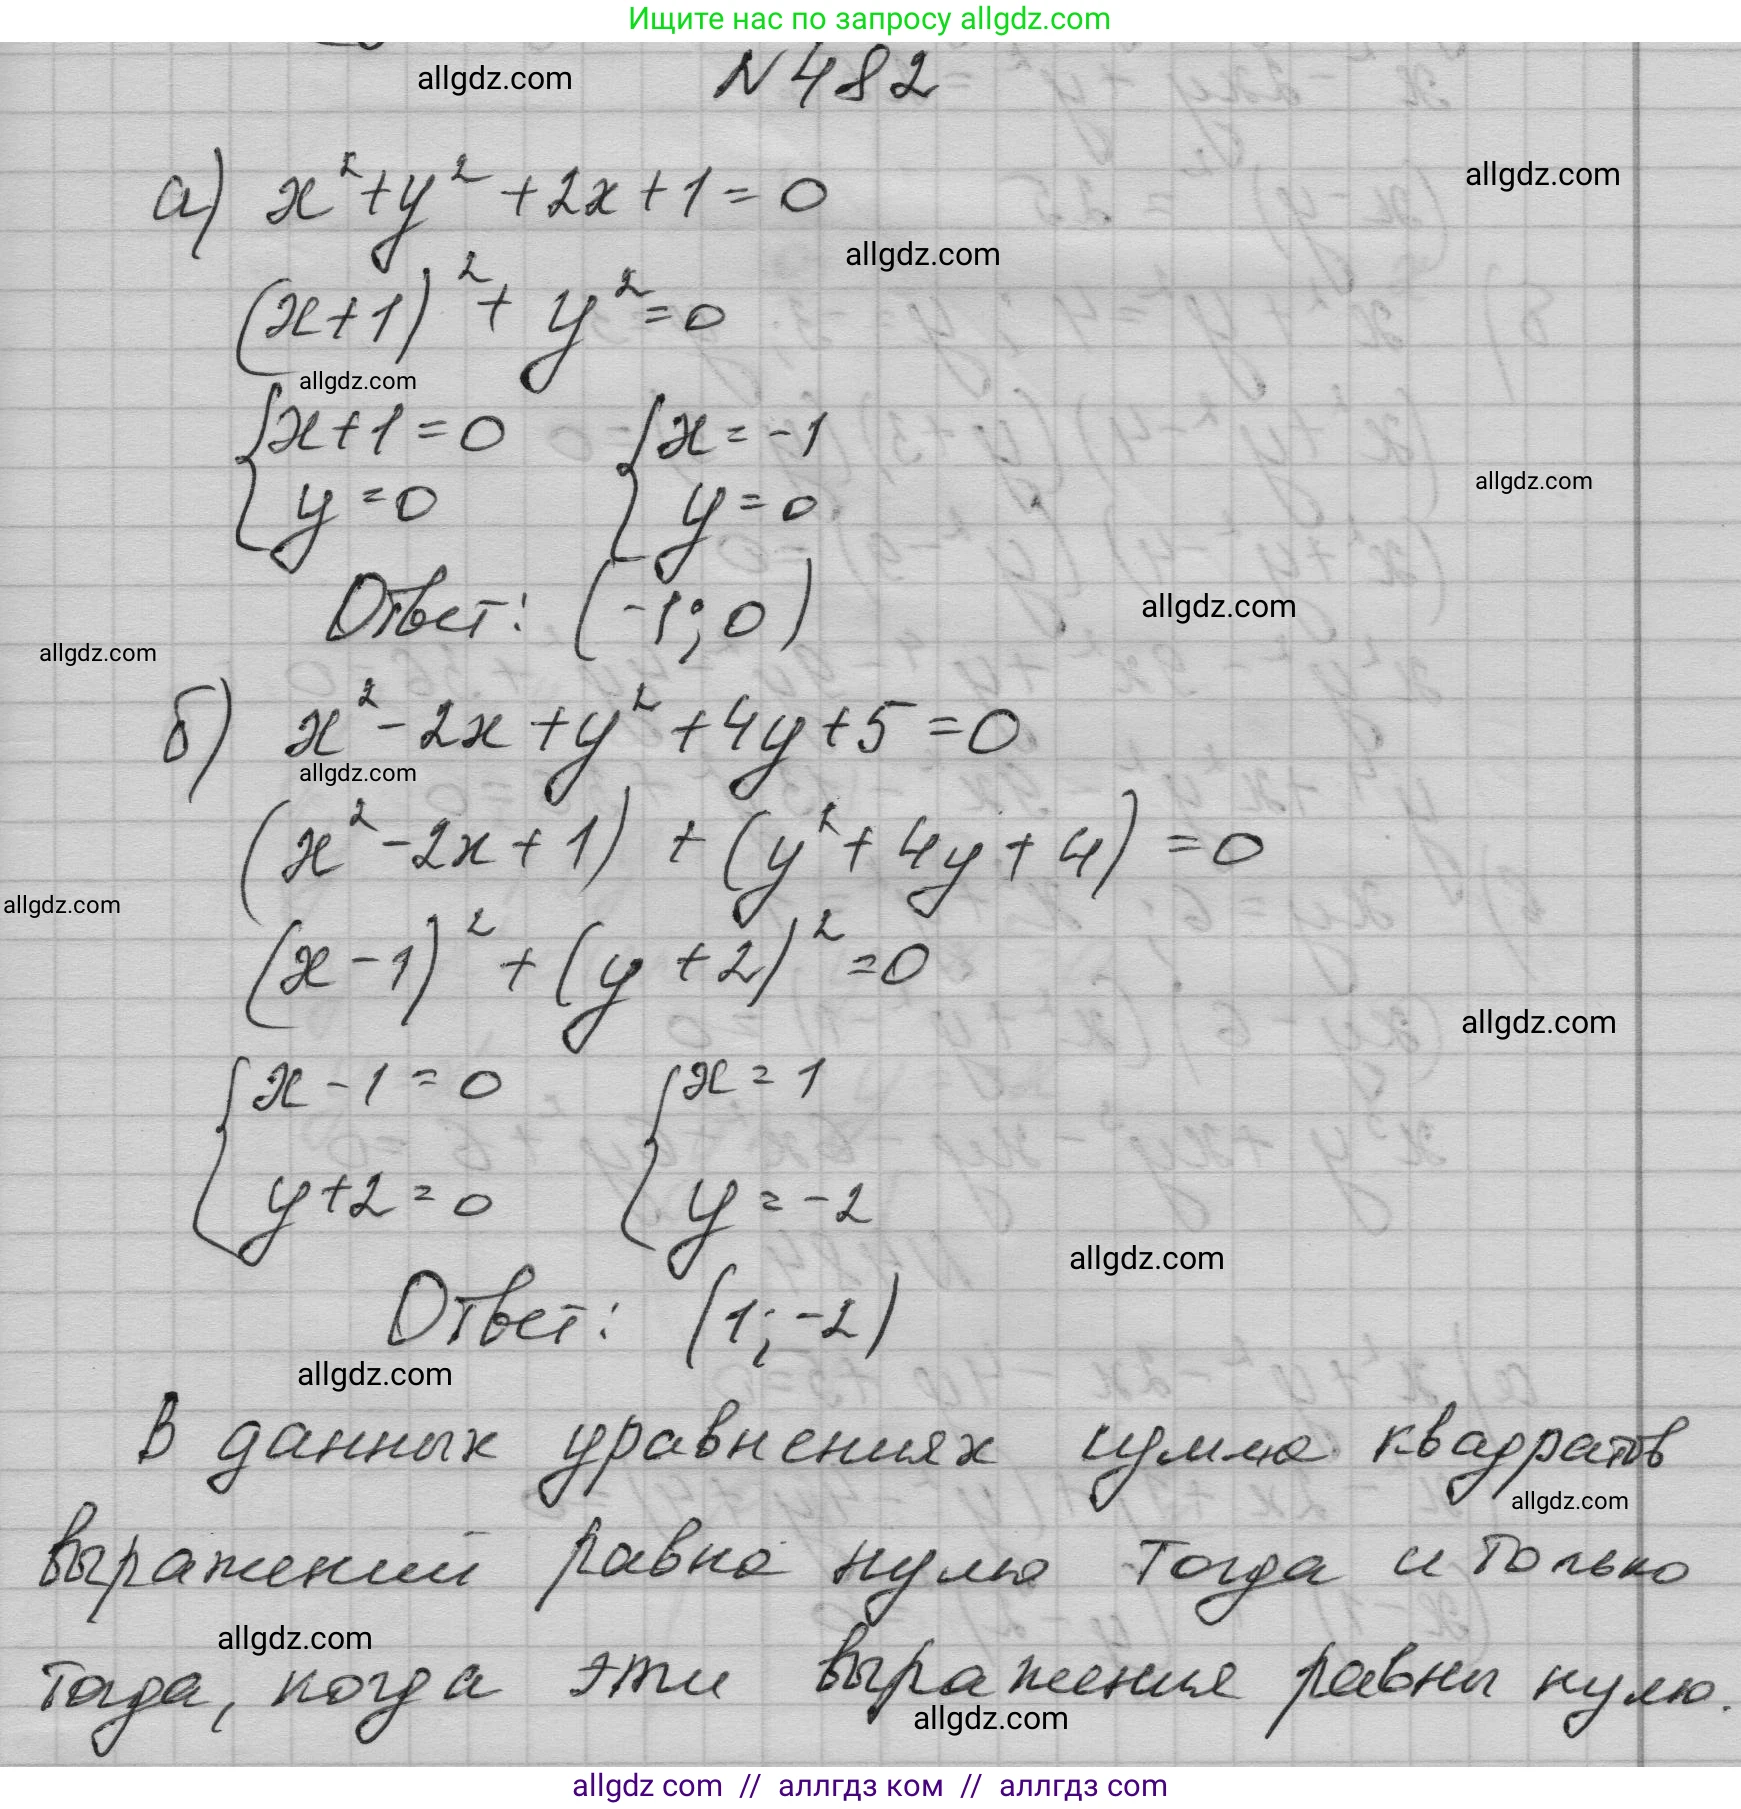 Ищите нас по запросу allgdz.com
allgdz.com
N 482
а) x² + y² + 2x + 1 = 0
allgdz.com
allgdz.com
(x+1)² + y² = 0
allgdz.com
{ x+1 = 0 { x = -1
allgdz.com
y = 0 y = 0
Ответ: (-1; 0)
allgdz.com
allgdz.com
б) x² - 2x + y² + 4y + 5 = 0
allgdz.com
(x² - 2x + 1) + (y² + 4y + 4) = 0
allgdz.com
(x - 1)² + (y + 2)² = 0
allgdz.com
{ x - 1 = 0 { x = 1
y + 2 = 0 y = -2
allgdz.com
Ответ: (1; -2)
allgdz.com
В данных уравнениях сумма квадратов
allgdz.com
выражений равна нулю тогда и только
allgdz.com
тогда, когда эти выражения равны нулю.
allgdz.com
allgdz com // аллгдз ком // аллгдз com